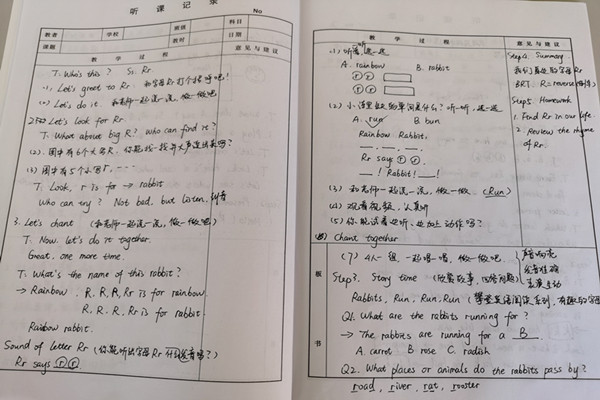 听 课 记 录
No
教者
学校
班级
科目
课题
教时
日期
教 学 过 程
意 见 与 建 议
T: Who's this? S1: Rr
(1) Let's greet to Rr. 和字母Rr打个招呼吧!
(2) Let's do it. 和老师一起说一说,做一做吧
2. Let's look for Rr.
T: What about big R? Who can find it?
(2). 图中有6个大写R. 你能找一找并大声读出来吗?
(3) 图中有5个小写r, ....
T: Look, r is for → rabbit
Who can try? Not bad, but listen,
3. Let's chant (和老师一起说一说,做一做吧)
T: Now, let's do it together.
Great, one more time.
T: What's the name of this rabbit?
→ Rainbow. R, R, R, Rr is for rainbow.
R, R, R, Rr is for rabbit
Rainbow rabbit.
Sound of letter Rr (你能听出字母Rr 发音吗?)
Rr says r r
教 学 过 程
意 见 与 建 议
(1) 听一听,选一选
A. rainbow B. rabbit
r r
r r
(2) 小诗里缺的单词是什么? 听一听,选一选
A. run B. bun
Rainbow Rabbit,
__, __, __.
Rr says r r.
__! Rabbit! __!
(3) 和老师一起说一说,做一做. (Run)
(4) 观看视频,认真听
(5) 你能试着边听,边加上动作吗?
(6) Chant together
(7) 4人一组,一起唱一唱,做一做吧.
声音响亮
发音准确
表演生动
Step3. Story time (欣赏故事,回答问题)
Rabbits, Run, Run, Run (攀登英语阅读系列,有趣的字母)
Q1. What are the rabbits running for?
→ The rabbits are running for a B.
A. carrot B. rose C. radish
Q2. What places or animals do the rabbits pass by?
road, river, rat, rooster
板
书
Step4. Summary
我们身边的字母Rr
BRT: R=reverse
Step5. Homework
1. Find Rr in our life.
2. Review the rhyme
of Rr.